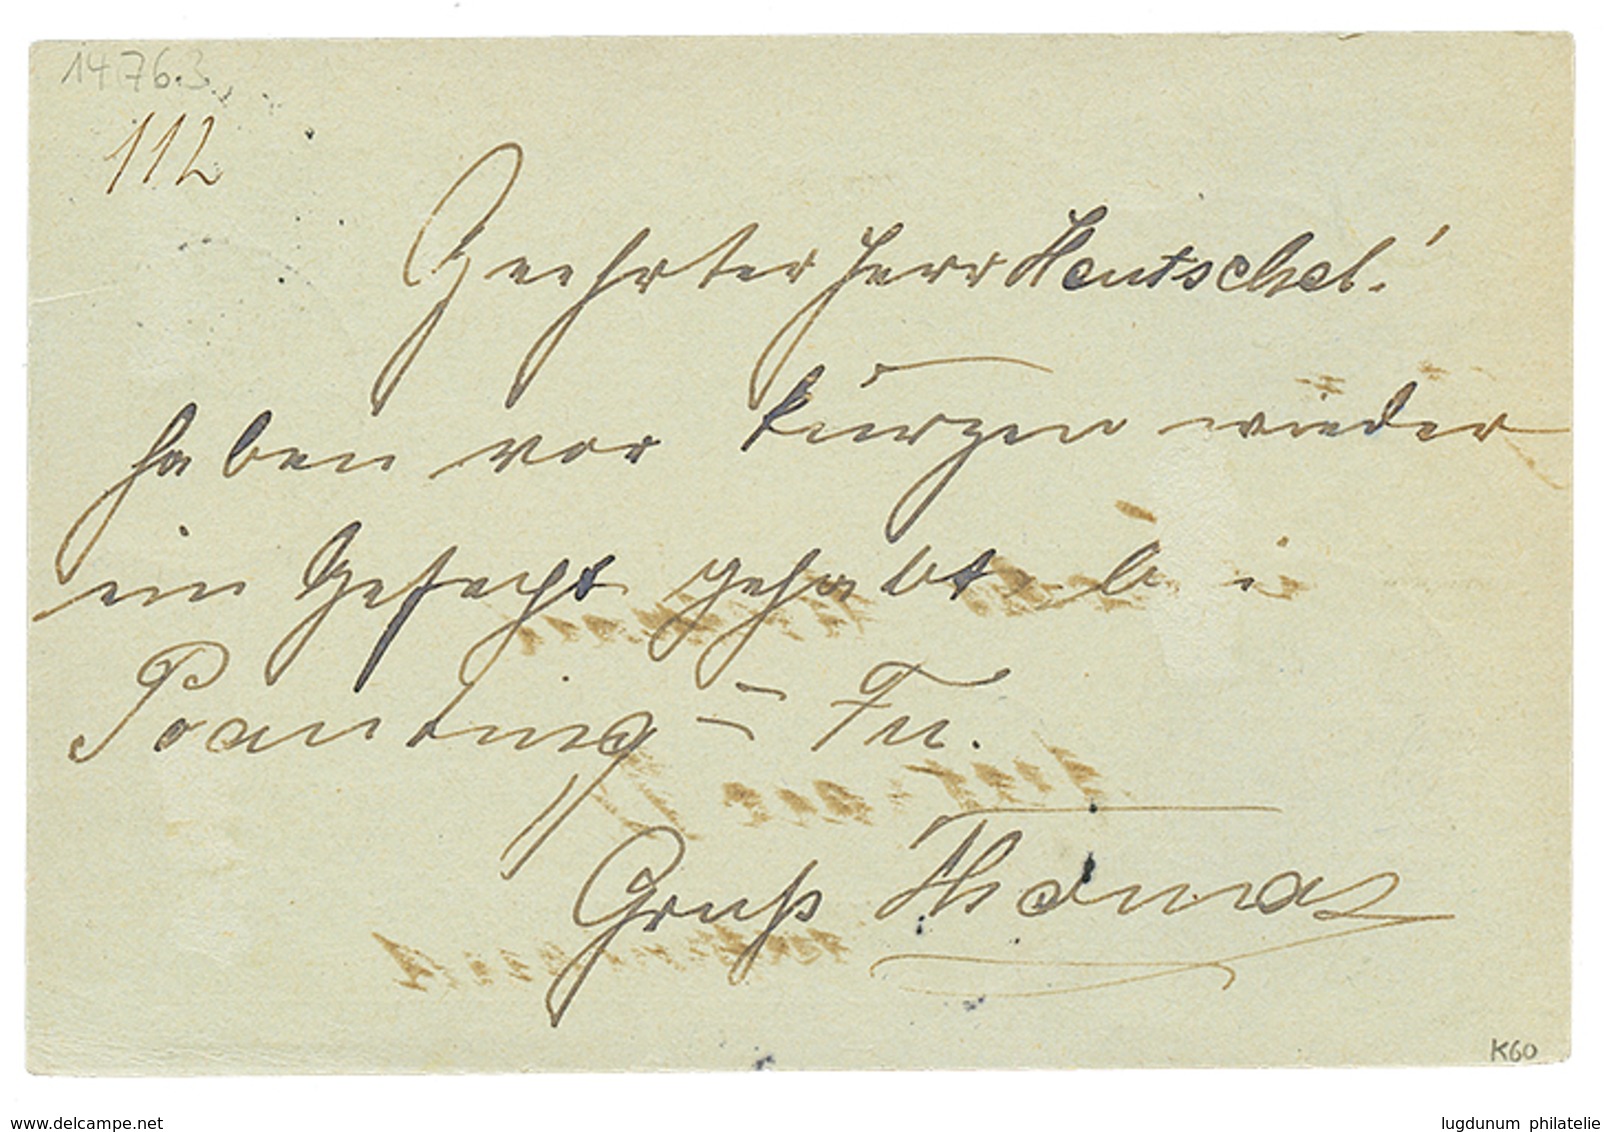 14763.
112
Geehrter Herr Hentschel!
haben vor kurzen wieder
ein Gefecht gehabt bei
Poauting - Fu.
Gruß Thomas
K60
www.delcampe.net
lugdunum philatelie